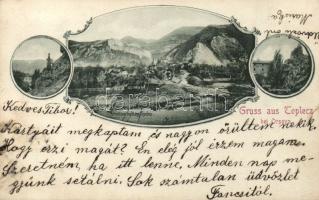 Maricza
Gruss aus Teplecz
bei Orsova
Kedves Tibor!
Kártyáit megkaptam és nagyon örültem nekik.
Hogy érzi magát? Én elég jól érzem magam.
Szeretném, ha itt lenne. Minden nap me-
gyünk sétálni. Sok számtalan üdvözlet
Fancsitól.